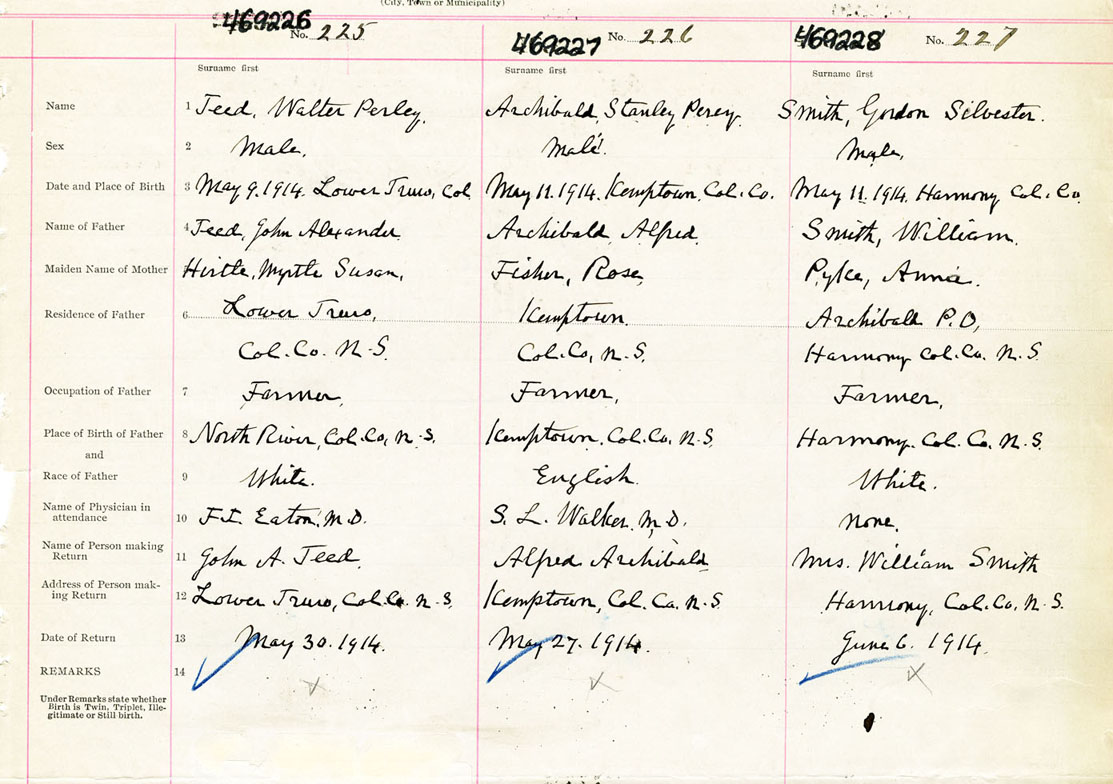 (City, Town or Municipality)
469226 No. 225 469227 No. 226 469228 No. 227
Surname first Surname first Surname first
Name 1 Teed, Walter Perley. Archibald, Stanley Percy. Smith, Gordon Silvester.
Sex 2 Male. Male. Male.
Date and Place of Birth 3 May 9. 1914. Lower Truro, Col May 11. 1914. Kemptown. Col. Co. May 11. 1914. Harmony Col. Co.
Name of Father 4 Teed, John Alexander. Archibald, Alfred. Smith, William.
Maiden Name of Mother Hirtle, Myrtle Susan, Fisher, Rose, Pyke, Anna.
Residence of Father 6 Lower Truro, Kemptown. Archibald P.O,
Col. Co. N.S. Col. Co, N.S. Harmony Col. Co. N.S.
Occupation of Father 7 Farmer. Farmer, Farmer.
Place of Birth of Father 8 North River, Col. Co, N.S. Kemptown, Col. Co, N.S. Harmony. Col. Co. N.S.
and
Race of Father 9 White. English. White.
Name of Physician in
attendance 10 F.I. Eaton, M.D. S. L. Walker, M.D. None.
Name of Person making
Return 11 John A. Teed. Alfred Archibald Mrs. William Smith
Address of Person mak-
ing Return 12 Lower Truro, Col. Co. N.S. Kemptown, Col. Co. N.S. Harmony, Col. Co. N.S.
Date of Return 13 May 30. 1914. May 27. 1914. June 6. 1914.
REMARKS 14
Under Remarks state whether
Birth is Twin, Triplet, Ille-
gitimate or Still birth.